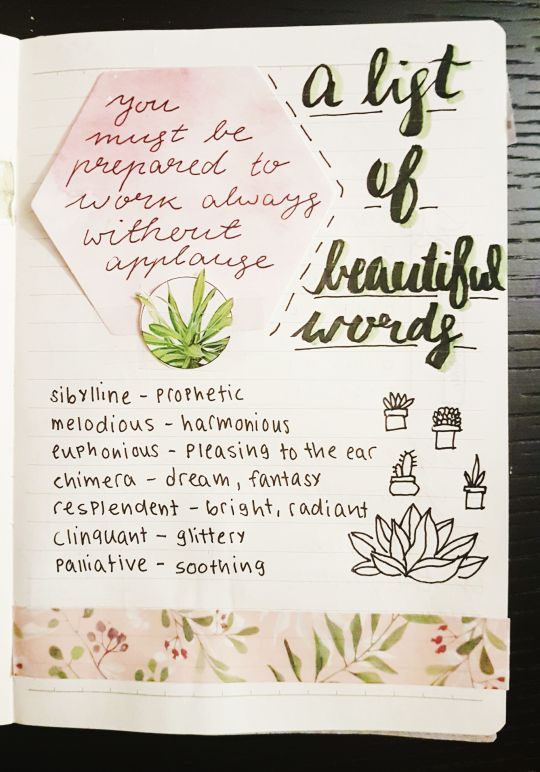 you
must be
prepared to
work always
without
applause
a list
of
beautiful
words
sibylline - prophetic
melodious - harmonious
euphonious - pleasing to the ear
chimera - dream, fantasy
resplendent - bright, radiant
clinquant - glittery
palliative - soothing